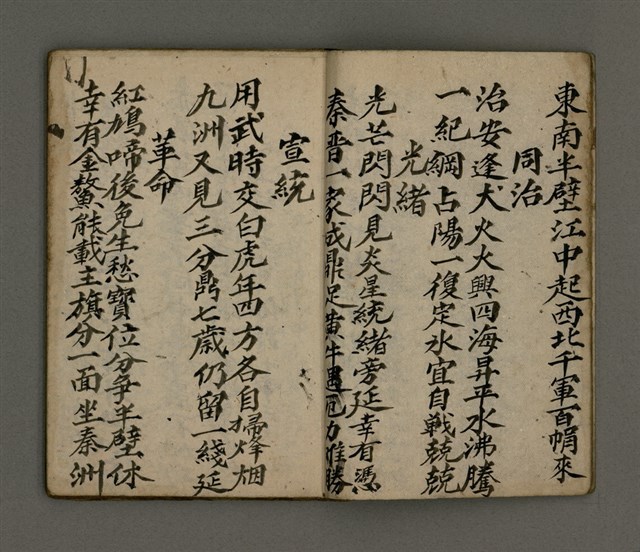 東南半壁江中起西北千軍百帽來
同治
治安逢犬火火興四海昇平水沸騰
一紀綱占陽一復定氷宜自戰兢兢
光緒
光芒閃閃見炎星統緒旁延幸有憑
秦晋一家成鼎足黃牛遇厄力難勝
宣統
用武時交白虎年四方各自掃烽烟
九洲又見三分鼎七歲仍留一綫延
革命
紅鳩啼後兔生愁寶位分爭半壁休
幸有金鰲能載主旗分一面坐秦洲